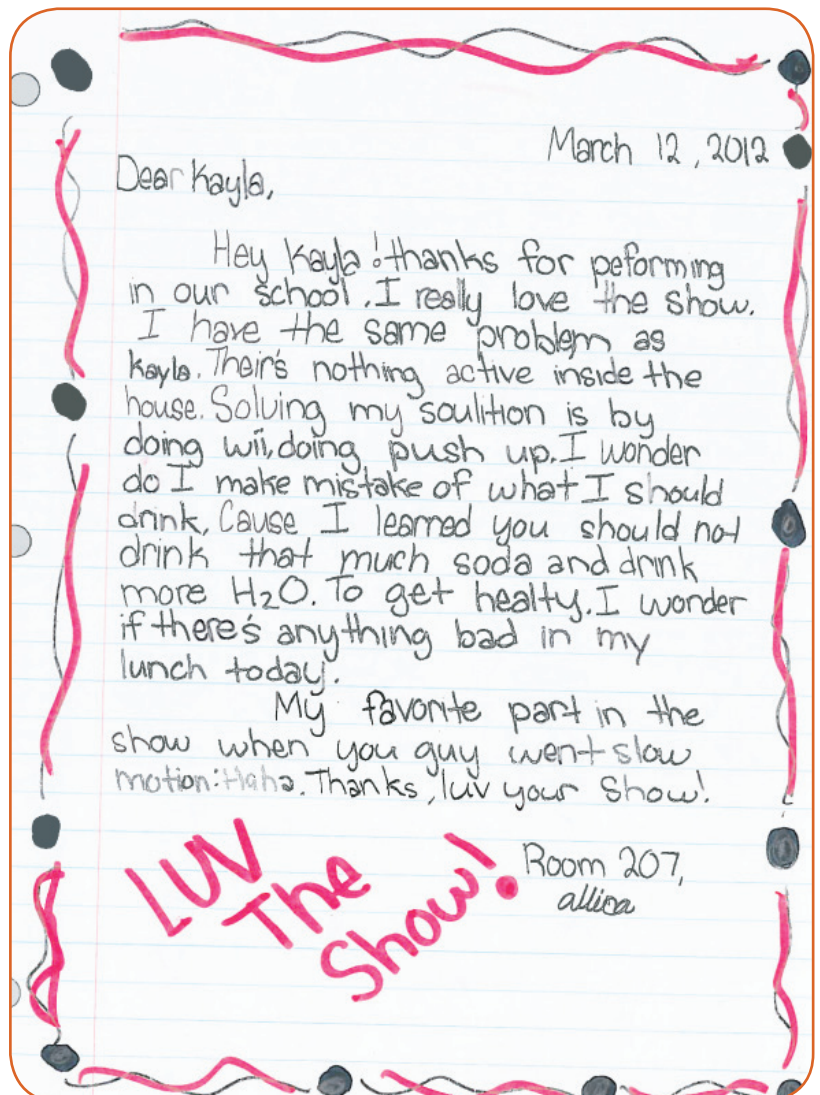 March 12, 2012
Dear Kayla,
Hey Kayla! thanks for peforming
in our school. I really love the show.
I have the same problem as
Kayla. Their's nothing active inside the
house. Solving my soulition is by
doing wii, doing push up. I wonder
do I make mistake of what I should
drink, Cause I learned you should not
drink that much soda and drink
more H₂O. To get healty. I wonder
if there's anything bad in my
lunch today.
My favorite part in the
show when you guy went slow
motion: Haha. Thanks, luv your Show!
LUV
The
Show!
Room 207,